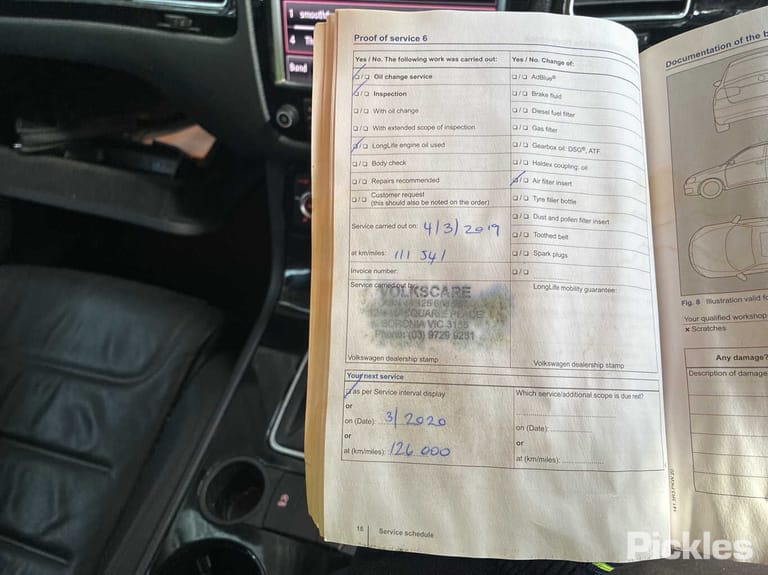 1 smooth
4 Th
Band
Proof of service 6
Yes / No. The following work was carried out:
Oil change service
Inspection
With oil change
With extended scope of inspection
LongLife engine oil used
Body check
Repairs recommended
Customer request
(this should also be noted on the order)
Service carried out on: 4/3/2019
at km/miles: 111 541
Invoice number:
Service carried out by:
VOLKSCARE
SQUARE PLACE
BORONIA VIC 3155
Phone: (03) 9729 9281
Volkswagen dealership stamp
Yes / No. Change of:
AdBlue®
Brake fluid
Diesel fuel filter
Gas filter
Gearbox oil: DSG®, ATF
Haldex coupling: oil
Air filter insert
Tyre filler bottle
Dust and pollen filter insert
Toothed belt
Spark plugs
LongLife mobility guarantee:
Volkswagen dealership stamp
Your next service
as per Service interval display
or
on (Date): 3/2020
or
at (km/miles): 126 000
Which service/additional scope is due next?
on (Date):
or
at (km/miles):
16 | Service schedule
Documentation of the b
Fig. 8 Illustration valid fo
Your qualified workshop
x Scratches
Any damage?
Description of damage
Pickles